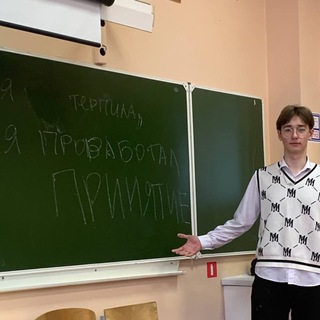 Я ТЕРПИЛА,
Я ПРОРАБОТАЛ
ПРИНЯТИЕ